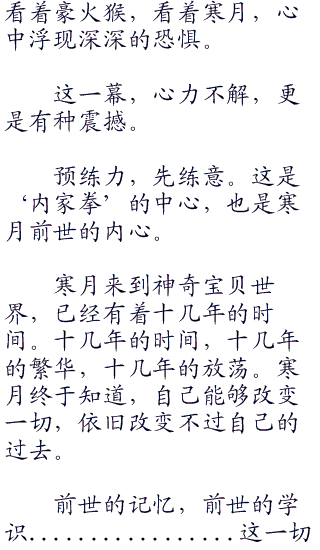 看着豪火猴，看着寒月，心
中浮现深深的恐惧。
这一幕，心力不解，更
是有种震撼。
预练力，先练意。这是
‘内家拳’的中心，也是寒
月前世的内心。
寒月来到神奇宝贝世
界，已经有着十几年的时
间。十几年的时间，十几年
的繁华，十几年的放荡。寒
月终于知道，自己能够改变
一切，依旧改变不过自己的
过去。
前世的记忆，前世的学
识.................这一切